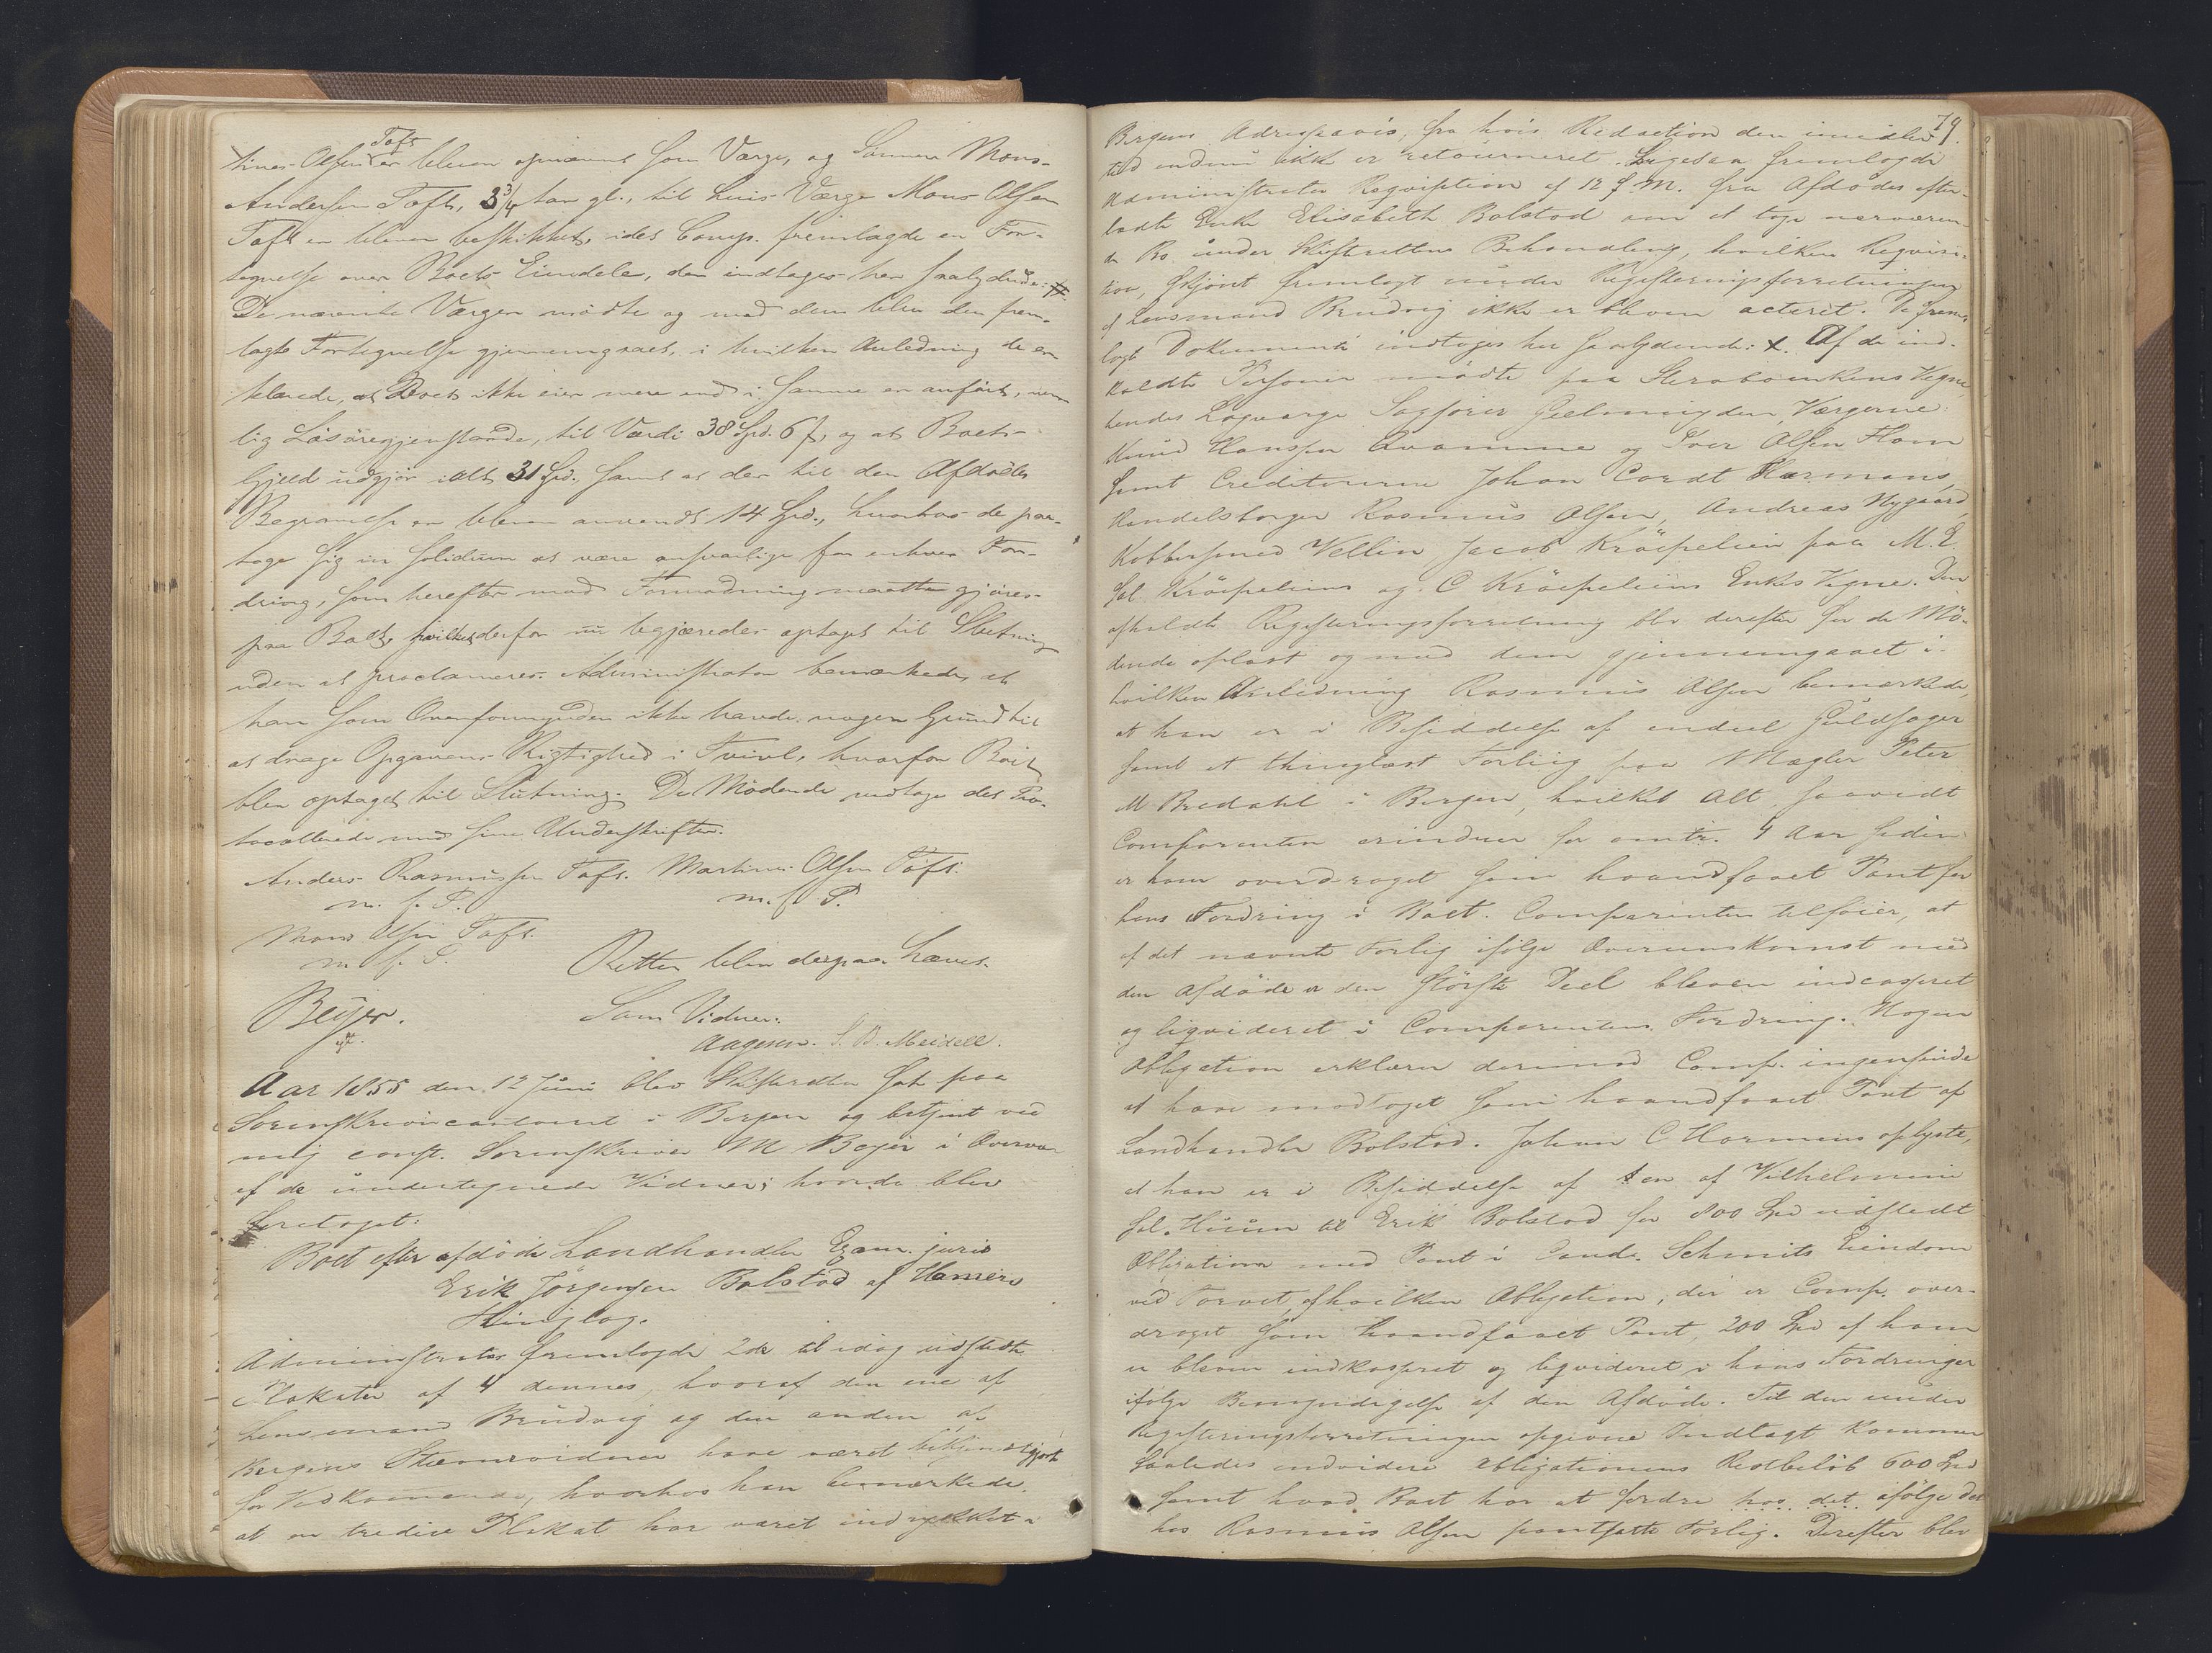 Toft
tines Olsen er bleven opnævnt som Værge, og Sønnen Mons
Andersen Toft, 3 3/4 Aar gl., til hvis Værge Mons Olsen
Toft er bleven beskikket, idet Comp. fremlagde en For-
tegnelse over Boets Eiendele, der indtages her saalydende: #.
De nævnte Værger mødte og med dem blev den frem-
lagte Fortegnelse gjennemgaaet, i hvilken Anledning de er-
klærede, at Boet ikke eier mere end i samme er anført, nem-
lig Løsøregjenstande, til Værdi 38 Spd. 6 ß, og at Boets
Gjeld udgjør ialt 31 Spd. samt at der til den Afdødes
Begravelse er bleven anvendt 14 Spd., hvorhos de paa-
toge sig in solidum at være ansvarlige for enhver For-
dring, som herefter mod Formodning maatte gjøres
paa Boet, hvilket derfor nu begjæredes optaget til Slutning
uden at proclameres. Administrator bemærkede, at
han som Overformynder ikke havde nogen Grund til
at drage Opgavens Rigtighed i Tvivl, hvorfor Boet
blev optaget til Slutning. De Mødende vedtoge det Pro-
tocollerede med sine Underskrifter.
Anders Rasmussen Toft. Martines Olsen Toft.
m. f. P. m. f. P.
Mons Olsen Toft.
m. f. P. Retten blev derpaa hævet.
Beyer. Som Vidner:
cst. Aagesen. S. B. Meidell.
Aar 1855 den 12 Juni blev Skifteretten sat paa
Sorenskrivercontoret i Bergen og betjent ved
mig const. Sorenskriver M Beyer i Overvær
af de undertegnede Vidner; hvorda blev
foretaget:
Boet efter afdøde Landhandler Exam. juris
Erik Jörgensen Bolstad af Hamre
Thinglag.
Administrator fremlagde 2de til idag udstedte
Plakater af 4 dennes, hvoraf den ene af
Lensmand Brudvig og den anden af
Bergens Stævnevidner have været bekjendtgjort
for Vedkommende, hvorhos han bemærkede,
at en tredie Plakat har været indrykket i
79.
Bergens Adresseavis, fra hvis Redaction den imidler-
tid endnu ikke er retourneret. Ligesaa fremlagde
Administrator Reqvisition af 12 f. M. fra Afdødes efter-
ladte Enke Elisabeth Bolstad om at tage nærværen-
de Bo under Skifterettens Behandling, hvilken Reqvisi-
tion, skjönt fremlagt under Registeringsforretningen
af Lensmand Brudvig ikke er bleven acteret. De frem-
lagte Dokumenter indtages her saalydende: x. Af de ind-
kaldte Personer mødte paa Sterboenkens Vegne
hendes Lagværge Sagfører Gjelmuyden, Værgerne:
Knud Hanssen Qvamme og Iver Olsen Flom
samt Creditorerne Johan Cordt Harmens,
Handelsborger Rasmus Olsen, Andreas Nygaard,
Kobbersmed Vellin Jacob Kröepelien paa M. E
Sal. Kröepeliens og C Kröepeliens Enkes Vegne. Den
afholdte Registeringsforretning blev derefter for de Mö-
dende oplæst og med dem gjennemgaaet i
hvilken Anledning Rasmus Olsen bemærkede,
at han er i Besiddelse af endeel Guldsager
samt et thinglæst Forliig paa Mægler Peter
M Bredahl i Bergen, hvilket Alt, saavidt
Comparenten erindrer for omtr. 4 Aar siden
er ham overdraget som haandfaaet Pant for
hans Fordring i Boet. Comparenten tilføier, at
af det nævnte Forlig ifølge Overeenskomst med
den Afdøde er den største Deel bleven indcasseret
og liqvideret i Comparentens Fordring. Nogen
Obligation erklærer derimod Comp. ingensinde
at have modtaget som haandfaaet Pant af
Landhandler Bolstad. Johan C Harmens oplyste,
at han er i Besiddelse af en af Vilhelmine
sal. Huum til Erik Bolstad for 800 Spd udstedt
Obligation med Pant i Cand. Schmits Eiendom
ved Torvet, af hvilken Obligation, der er Comp. over-
draget som haandfaaet Pant, 200 Spd af ham
er bleven indkasseret og liqvideret i hans Fordringer
ifølge Bemyndigelse af den Afdøde. Til den under
Registeringsforretningen opgivne Indtægt kommer
saaledes endvidere Obligationens Restbeløb 600 Spd
samt hvad Boet har at fordre hos det ifølge det
hos Rasmus Olsen pantsatte Forlig. Derefter blev